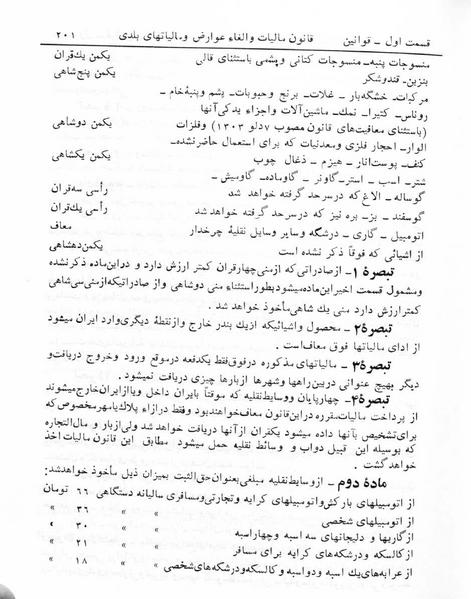 قسمت اول ــ قوانین قانون مالیات والغاء عوارض ومالیاتهای بلدی ۲۰۱
منسوجات پنبه ــ منسوجات کتانی وپشمی باستثنای قالی یکمن یك‌قران
بنزین ــ قندوشکر یکمن پنج‌شاهی
مرکبات ــ خشگه‌بار ــ غلات ــ برنج وحبوبات ــ پشم وپنبهٔ خام ــ
روناس ــ کتیرا ــ نمك ــ ماشین‌آلات واجزاء یدکی‌آنها
(باستثنای معافیت‌های قانون مصوب ۷دلو ۱۳۰۳) وفلزات
الوار ــ احجار فلزی ومعدنیات که برای استعمال حاضرنشده ــ یکمن دوشاهی
کنف ــ پوست‌انار ــ هیزم ــ ذغال چوب یکمن یکشاهی
شتر ــ اسب ــ استر ــ گاونر ــ گاوماده ــ گاومیش ــ
گوساله ــ الاغ که درسرحد گرفته خواهد شد رأسی سه‌قران
گوسفند ــ بز ــ بره نیز که درسرحد گرفته خواهد شد رأسی یك‌قران
اتومبیل ــ گاری ــ درشگه وسایر وسایل نقلیهٔ چرخدار معاف
از اشیائی که فوقاً ذکر نشده است یکمن‌دهشاهی
تبصرهٔ ۱ ــ ازصادراتی‌که ازمنی‌چهارقران کمتر ارزش دارد و دراین‌ماده ذکرنشده
ومشمول قسمت اخیراین‌ماده‌میشودبطوراستثناء منی دوشاهی و از صادراتیکه‌ازمنی‌سی‌شاهی
کمترارزش دارد منی یك شاهی‌مأخوذ خواهد شد .
تبصرهٔ ۲ ــ محصول واشیائیکه ازیك بندر خارج وازنقطهٔ دیگری‌وارد ایران میشود
از ادای مالیاتها فوق معاف‌است .
تبصرهٔ ۳ ــ مالیاتهای مذکوره درفوق‌فقط یکدفعه درموقع ورود وخروج دریافت‌و
دیگر بهیچ عنوانی دربین‌راهها وشهرها ازبارها چیزی دریافت نمیشود .
تبصرهٔ ۴ ــ چهارپایان ووسایط‌نقلیه که موقتاً بایران داخل ویاازایران‌خارج‌میشوند
از پرداخت مالیات‌مقرره دراین‌قانون معاف‌خواهندبود وفقط درازاء پلاك‌یامهرمخصوص‌که
برای‌تشخیص بآنها داده میشود یکقران ازآنها دریافت خواهد شد ولی‌ازبار و مال‌التجاره
که بوسیله این قبیل دواب و وسائط نقلیه حمل میشود مطابق این قانون مالیات اخذ
خواهدگشت .
مادهٔ دوم ــ ازوسایط‌نقلیه مبلغی‌بعنوان‌حق‌الثبت بمیزان ذیل مأخوذ خواهدشد:
از اتومبیلهای بارکش‌واتومبیلهای کرایه وتجارتی‌ومسافری سالیانه دستگاهی ۶۶ تومان
از اتومبیلهای شخصی » » ۳۶ »
ازگاریها و دلیجانهای سه اسبه وچهاراسبه » » ۳۰ »
ازکالسکه ودرشکه‌های کرایه برای مسافر » » ۲۱ »
از عرابه‌های‌یك اسبه ودواسبه و کالسکه‌ودرشکه‌های‌شخصی » » ۱۸ »